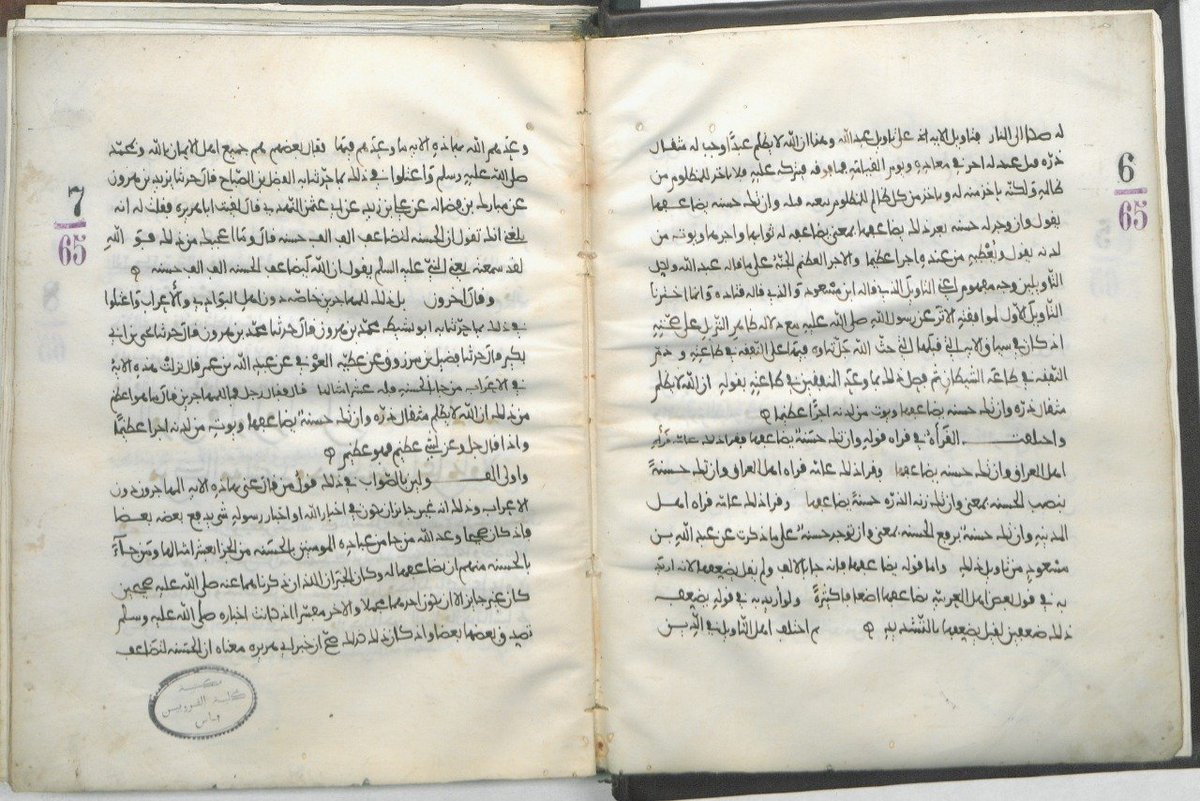 6
65
له صكا الى النار فتاويل الايه اذا على تاويل عبد الله هذا ان الله لا يظلم عبدا وجب له مثقال
ذره قبل عبد له اخر في معاده ويوم القيامه فما فوقه فيتركه عليه فلا ياخذه للمظلوم من
ظالمه ولكنه ياخذه منه له وياخذ من كل ظالم للمظلوم تبعته قبله وان تك حسنه يضاعفها
يقول وان توجد له حسنه يضاعفها بمعنى يضاعف له ثوابها واجرها ويوت من
لدنه يقول ويعطيه من عنده اجرا عظيما والاجر العظيم الجنة على ما قاله عبد الله ولكل
التاويلين وجه مفهوم اعني التاويل الذي قاله ابن مسعود والذي قاله قتاده وانما اخترنا
التاويل الاول لموافقته الاثر عن رسول الله صلى الله عليه مع دلالة ظاهر التنزيل على صحته
اذ كان في سياق الايه التي قبلها التي حث الله جل ثناوه فيها على النفقه في طاعته وذم
النفقه في طاعه الشيطان ثم وصل ذلك بما وعد المنفقين في طاعته بقوله ان الله لا يظلم
مثقال ذره وان تك حسنه يضاعفها ويوت من لدنه اجرا عظيما
واختلفت القرأة في قراة قوله وان تك حسنة يضاعفها فقرا ذلك عامة قرأة
اهل العراق وان تك حسنه يضاعفها وقرا ذلك عامه قراه اهل العراق وان تك حسنة
بنصب الحسنه بمعنى وان تك زنه الذره حسنة يضاعفها وقرا ذلك عامه قراه اهل
المدينه وان تك حسنة برفع الحسنه بمعنى وان توجد حسنة على ما ذكرت عن عبد الله بن
مسعود من تاويل ذلك واما قوله يضاعفها فانه جا بالالف ولم يقل يضعفها لانه اريد
به في قول بعض اهل العربية يضاعفها اضعافا كثيرة ولو اريد به في قوله يضعف
ذلك ضعفين لقيل يضعفها بالتشديد ثم اختلف اهل التاويل في الذين
7
65
وعدهم الله بهاذه الايه ما وعدهم فيها فقال بعضهم هم جميع اهل الايمان بالله وبمحمد
صلى الله عليه وسلم واعتلوا في ذلك بما حدثنا به الفضل بن الصباح قال حدثنا يزيد بن هرون
عن مبارك بن فضاله عن علي بن زيد عن ابي عثمن النهدي قال لقيت ابا هريره فقلت له انه
بلغني انك تقول ان الحسنه لتضاعف الف الف حسنه قال وما اعجبك من ذلك فو الله
لقد سمعته يعني النبي عليه السلم يقول ان الله ليضاعف الحسنه الف الف حسنه
وقال اخرون بل ذلك للمهاجرين خاصه دون اهل البوادي والأعراب واعتلوا
في ذلك بما حدثنا به ابو نشيط محمد بن هرون قال حدثنا يحيى بن ابي
بكير قال حدثنا فضيل بن مرزوق عن عطيه العوفي عن عبد الله بن عمر قال نزلت هذه الاية
في الاعراب من جا بالحسنه فله عشر امثالها قال فقال رجل فما للمهاجرين قال ما هو اعظم
من ذلك ان الله لا يظلم مثقال ذره وان تك حسنة يضاعفها ويوت من لدنه اجرا عظيما
واذا قال جل وعز لشي عظيم فهو عظيم
واولى القولين بالصواب في ذلك قول من قال عنى بهاذه الايه المهاجرون دون
الاعراب وذلك انه غير جايز ان يكون في اخبار الله او اخبار رسوله شي يدفع بعضه بعضا
فاذ كان صحيحا وعد الله من جا من عباده المومنين بالحسنه من الجزا عشر امثالها ومن جآء
بالحسنه منهم ان يضاعفها له وكان الخبران اللذان ذكرناهما عنه صلى الله عليه صحيحين
كان غير جايز الا ان يكون احدهما مجملا والاخر مفسرا اذ كانت اخباره صلى الله عليه وسلم
يصدق بعضها بعضا واذ كان ذلك كذلك صح ان خبر ابي هريره معناه ان الحسنه لتضاعف
مكتبة
كلية القرويين
بفاس